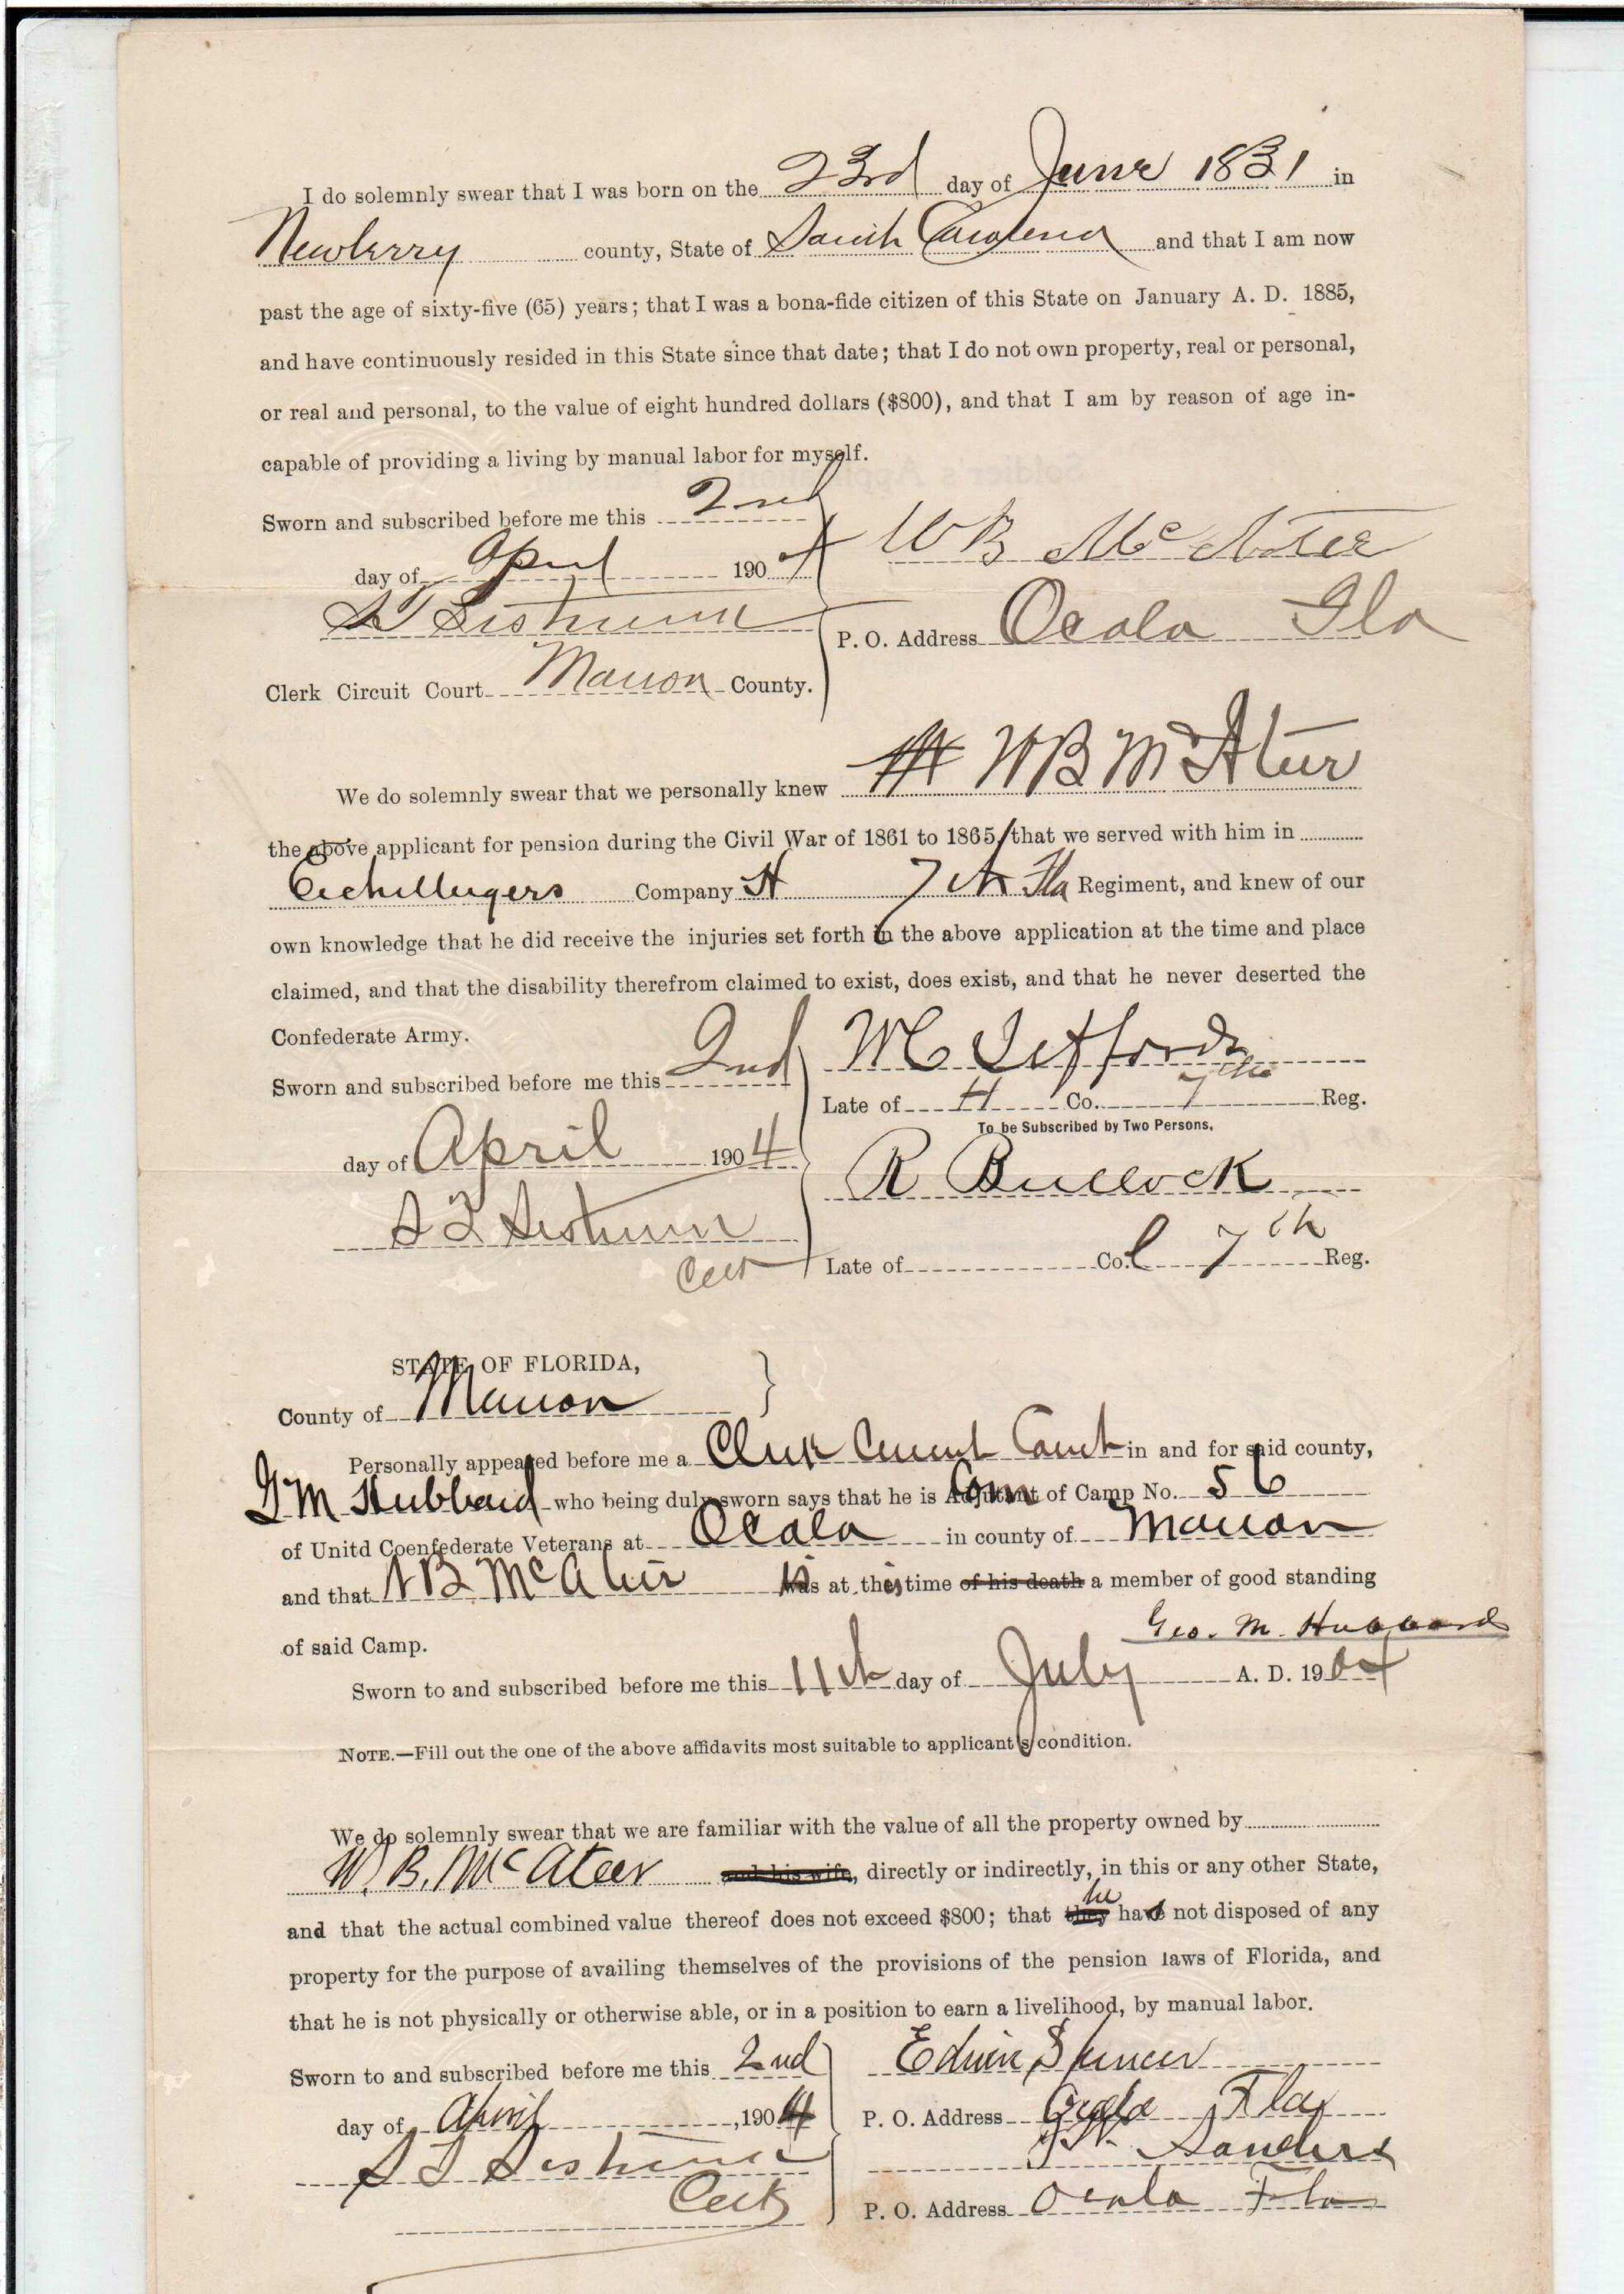 I do solemnly swear that I was born on the 23rd day of June 1831 in
Newberry county, State of South Carolina and that I am now
past the age of sixty-five (65) years; that I was a bona-fide citizen of this State on January A. D. 1885,
and have continuously resided in this State since that date; that I do not own property, real or personal,
or real and personal, to the value of eight hundred dollars ($800), and that I am by reason of age in-
capable of providing a living by manual labor for myself.
Sworn and subscribed before me this 2nd
day of April 1904
W B McAteer
S T Sistrunk
P. O. Address Ocala Fla
Clerk Circuit Court Marion County.
We do solemnly swear that we personally knew W B McAteer
the above applicant for pension during the Civil War of 1861 to 1865, that we served with him in
Company H 7th Fla Regiment, and knew of our
own knowledge that he did receive the injuries set forth in the above application at the time and place
claimed, and that the disability therefrom claimed to exist, does exist, and that he never deserted the
Confederate Army.
Sworn and subscribed before me this 2nd
Late of H Co. 7th Reg.
To be Subscribed by Two Persons.
day of April 1904
R Bullock
S T Sistrunk
Clk
Late of Col 7th Reg.
STATE OF FLORIDA,
County of Marion
Personally appeared before me a Clerk Circuit Court in and for said county,
G M Hubbard who being duly sworn says that he is Adjutant Com of Camp No. 56
of Unitd Coenfederate Veterans at Ocala in county of Marion
and that W B McAteer is at this time of his death a member of good standing
of said Camp.
Geo. M. Hubbard
Sworn to and subscribed before me this 11th day of July A. D. 1904
NOTE.—Fill out the one of the above affidavits most suitable to applicant's condition.
We do solemnly swear that we are familiar with the value of all the property owned by
W. B. McAteer and his wife, directly or indirectly, in this or any other State,
and that the actual combined value thereof does not exceed $800; that they he has not disposed of any
property for the purpose of availing themselves of the provisions of the pension laws of Florida, and
that he is not physically or otherwise able, or in a position to earn a livelihood, by manual labor.
Sworn to and subscribed before me this 2nd
Edwin Spencer
day of April, 1904
P. O. Address Ocala Fla
S T Sistrunk
Sanders
Clk
P. O. Address Ocala Fla